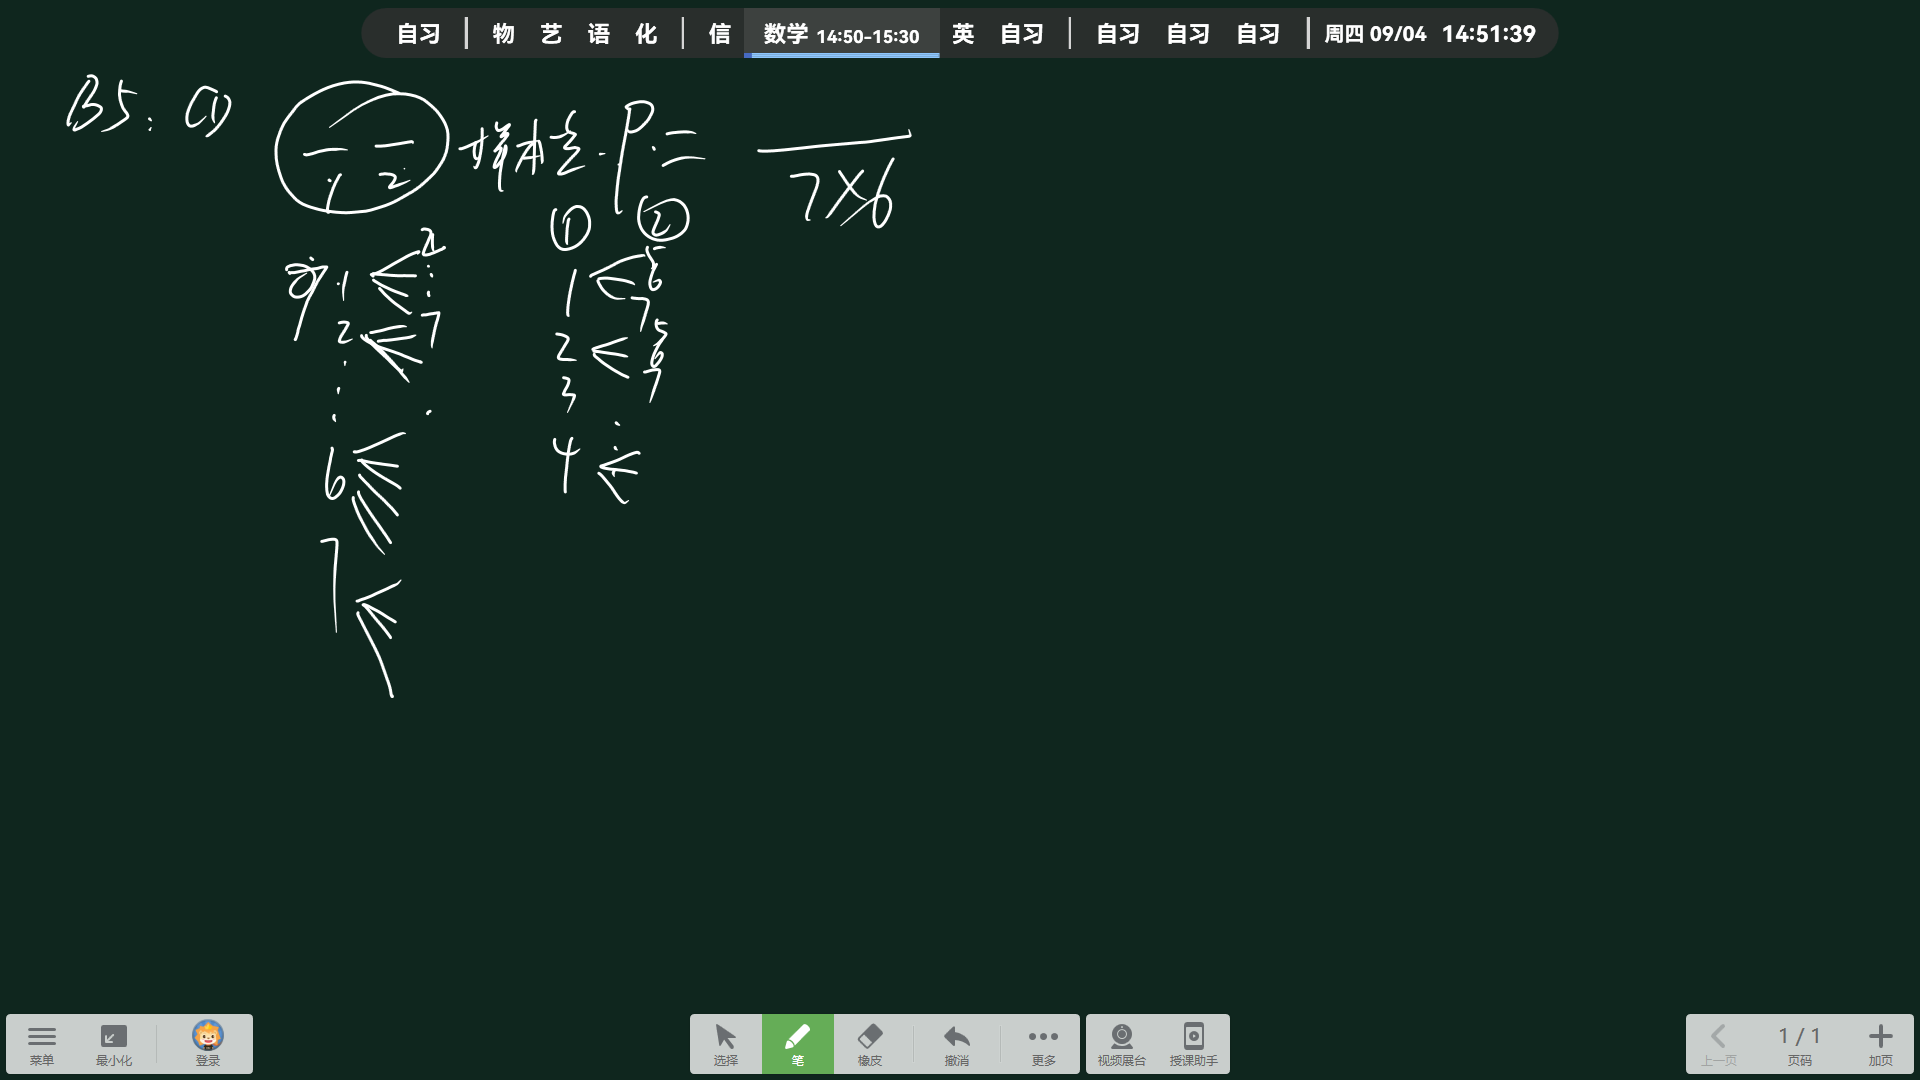 自习 | 物 艺 语 化 | 信 数学 14:50-15:30 英 自习 | 自习 自习 自习 | 周四 09/04 14:51:39
B5: (1)
1 2 样本点. P =
7×6
① ②
1 2 1 5 6 7
2 7 2 5 6 7
3
6 4
7
菜单 最小化 登录 选择 笔 橡皮 撤消 更多 视频展台 授课助手 上一页 1 / 1 页码 加页